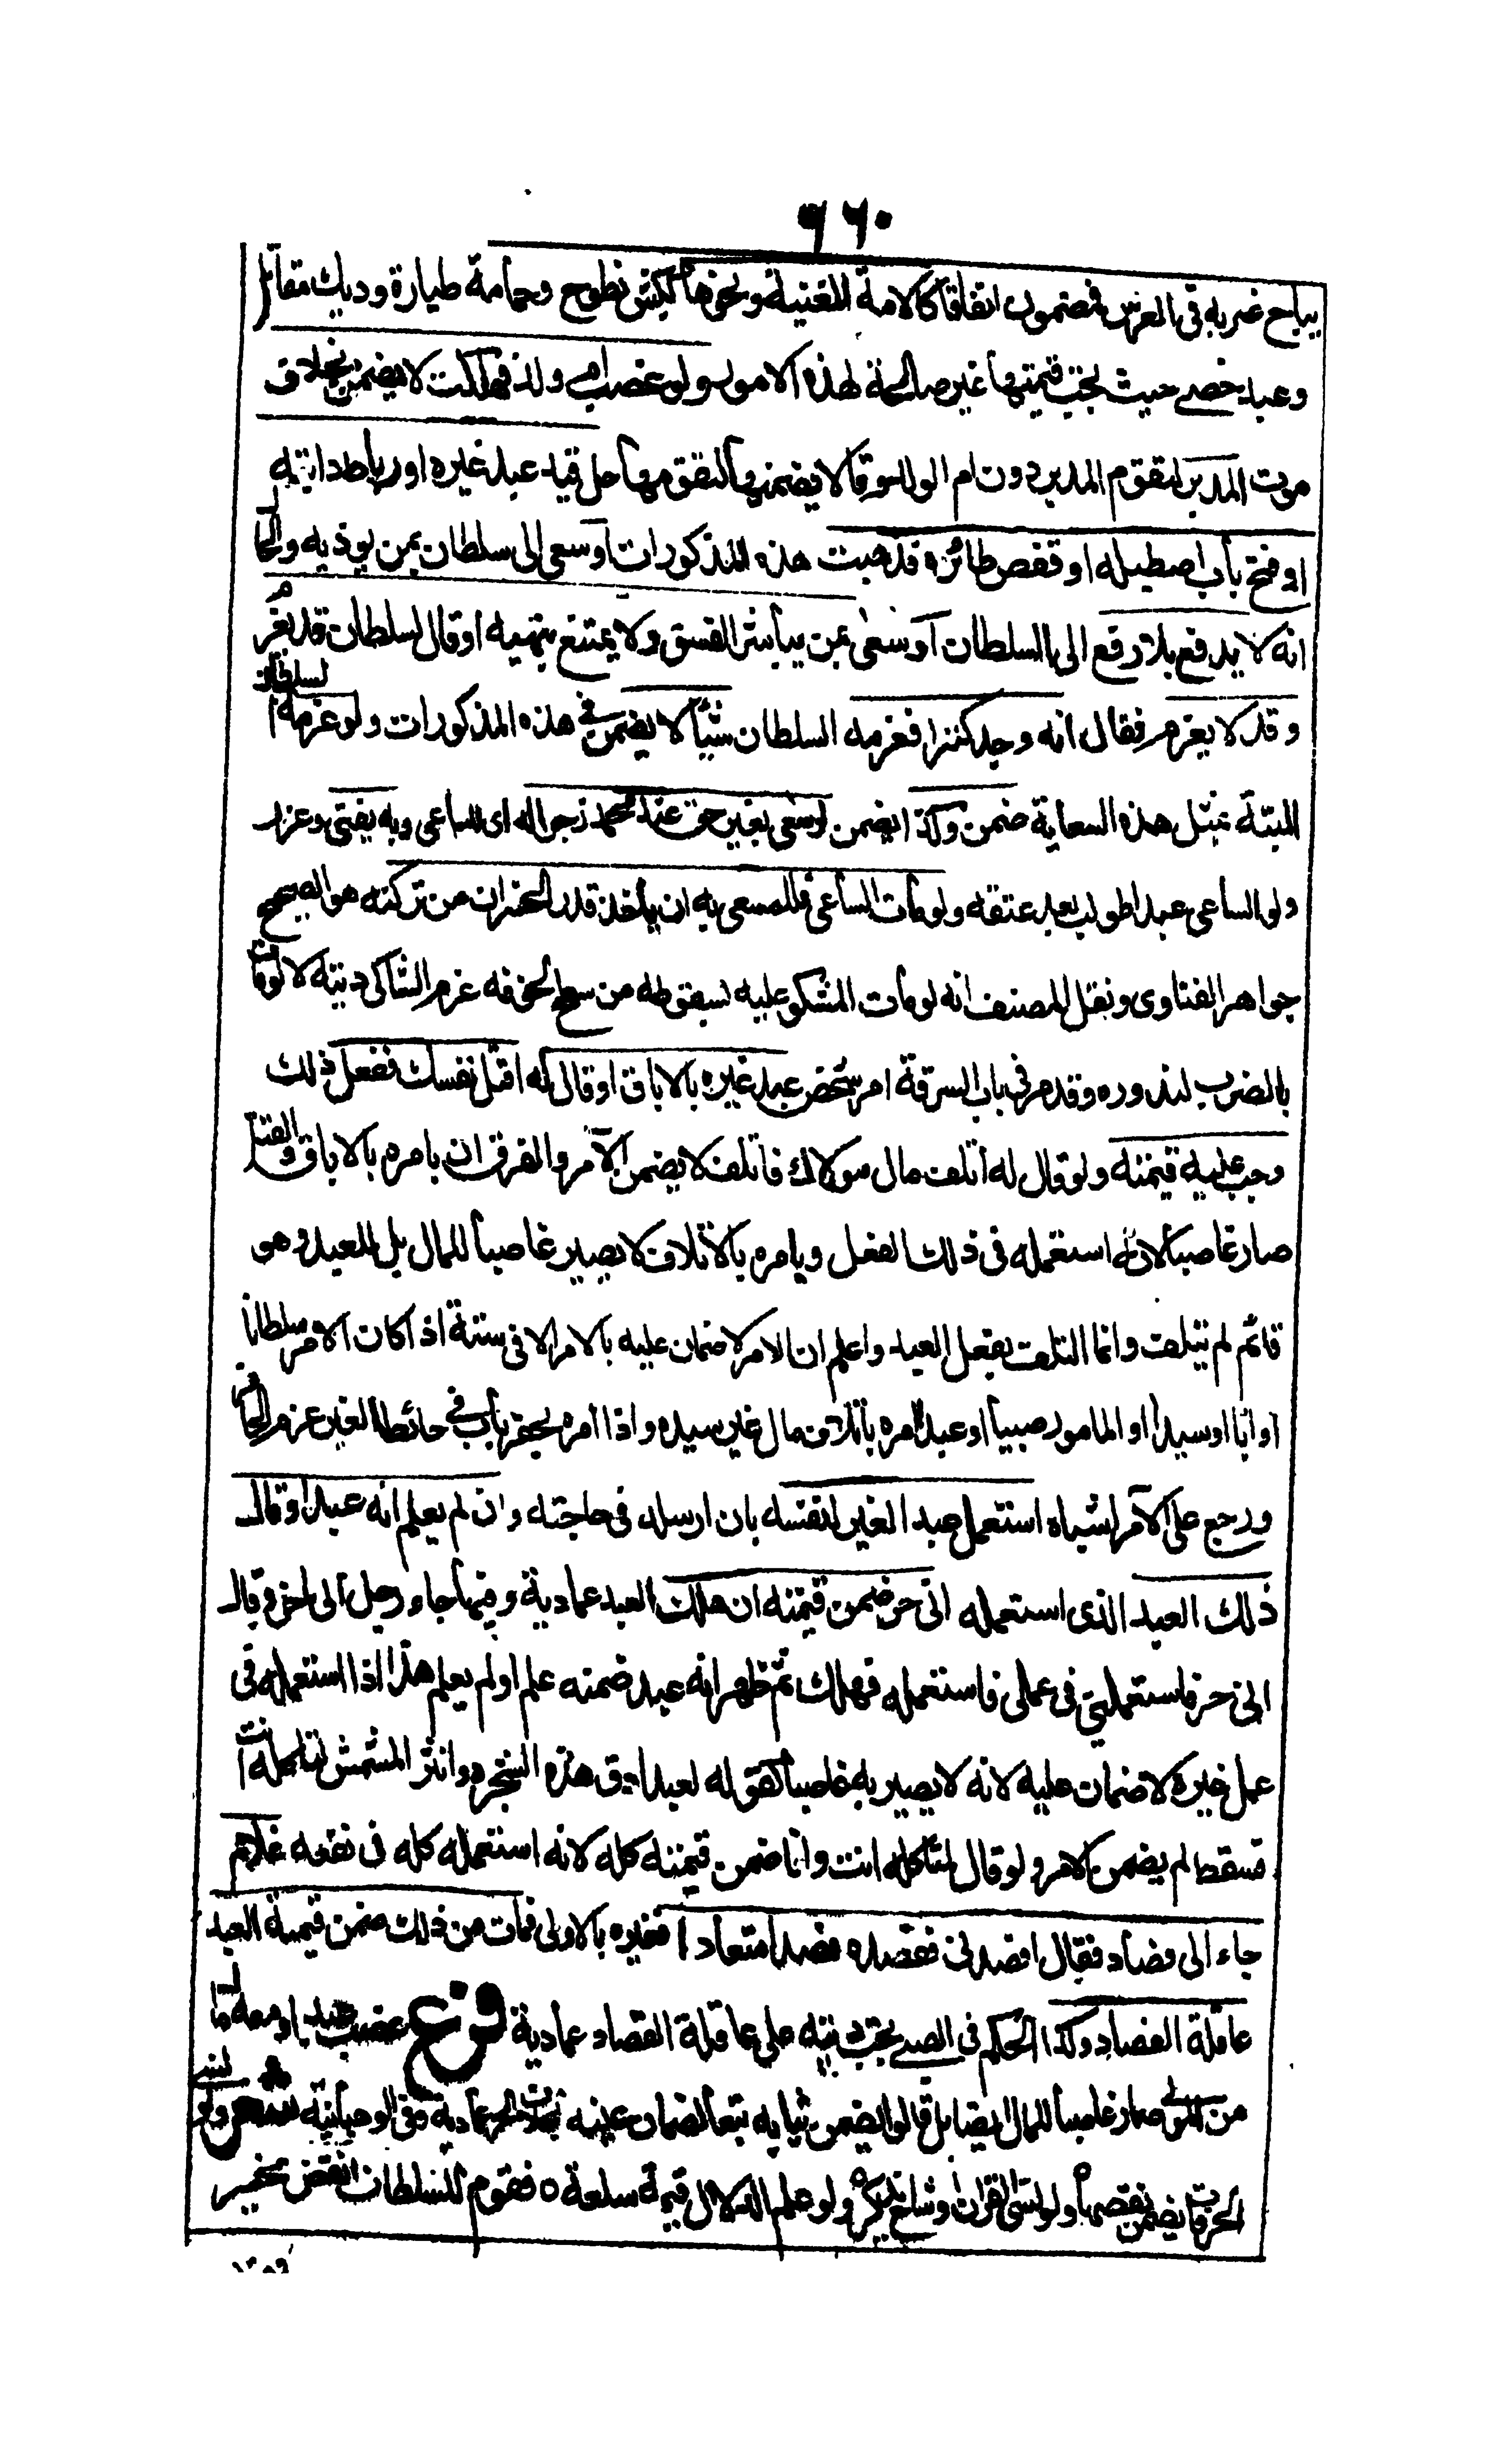 ٦٦٠
يباح ضربه في العرس فمضمون اتفاقا كالامة المغنية ونحوها ككبش نطوح وحمامة طيارة وديك مقاتل
وعبد خصي حيث تجب قيمتها غير صالحة لهذه الامور ولو غصب ام ولد فهلكت لا يضمن بخلاف
موت المدبر لتقوم المدبر دون ام الولد وقالا يضمنها لتقومها حل قيد عبد غيره او رباط دابته
او فتح باب اصطبله او قفص طائره فذهبت هذه المذكورات او سعى الى سلطان بمن يوذيه والحال
انه لا يدفع بلا رفع الى السلطان او سعى بمن يباشر الفسق ولا يمتنع بنهيه او قال لسلطان قد يغرم
وقد لا يغرم فقال انه وجد كنزا فغرمه السلطان شيئا لا يضمن في هذه المذكورات ولو غرمه السلطان
البتة بمثل هذه السعاية ضمن وكذا يضمن لو سعى بغير حق عند محمد زجرا له اى للساعى وبه يفتى وعزر
ولو الساعى عبدا طولب بعد عتقه ولو مات الساعى فللمسعى به ان ياخذ قدر الخسران من تركته هو الصحيح
جواهر الفتاوى ونقل المصنف انه لو مات المشكو عليه بسقوطه من سطح لخوفه غرم الشاكى ديته لا لو مات
بالضرب لندوره وقد مر في باب السرقة امر شخص عبد غيره بالاباق او قال له اقتل نفسك ففعل ذلك
وجب عليه قيمته ولو قال له اتلف مال مولاك فاتلف لا يضمن الآمر والفرق ان بامره بالاباق والقتل
صار غاصبا لانه استعمله في ذلك الفعل وبامره بالاتلاف لا يصير غاصبا للمال بل للعبد وهو
قائم لم يتلف وانما التلف بفعل العبد واعلم ان الامر لا ضمان عليه بالامر الا في ستة اذا كان الآمر سلطانا
او ابا او سيدا او المامور صبيا او عبدا امره باتلاف مال غير سيده واذا امره بحفر باب في حائط الغير غرم الحافر
ورجع على الآمر اشباه استعمل عبد الغير لنفسه بان ارسله في حاجته وان لم يعلم انه عبد او قال
ذلك العبد الذى استعمله انى حر ضمن قيمته ان هلك العبد عمادية وفيها جاء رجل الى اخر وقال
انى حر فاستعملنى في عمل فاستعمله فهلك ثم ظهر انه عبد ضمنه علم او لم يعلم هذا اذا استعمله في
عمل غيره لا ضمان عليه لانه لا يصير به غاصبا كقوله لعبد ارق هذه الشجرة وانثر المشمش لتاكله انت
فسقط لم يضمن الآمر ولو قال لتاكله انت وانا ضمن قيمته كله لانه استعمله كله في نفعه غلام
جاء الى فصاد فقال افصدنى ففصده فصدا معتادا فغيره بالاولى فمات من ذلك ضمن قيمة العبد
عاقلة الفصاد وكذا الحكم في الصبى تجب ديته على عاقلة الفصاد عمادية فرع غصب عبدا ومعه مال
من المولى صار غاصبا للمال ايضا بل قالوا يضمن ثيابه تبعا لضمان عينه بخلاف الحر عمادية وفي الوهبانية ولو نسى
الحرفات يضمن نقصها ولو نسى القران او شاخ يذكر ولو علم الدلال قيمة سلعة فقوم للسلطان انقص يخسر